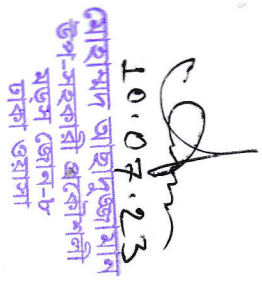 10.07.23
মোহাম্মদ আছাদুজ্জামান
উপ-সহকারী প্রকৌশলী
মডস জোন-৮
ঢাকা ওয়াসা